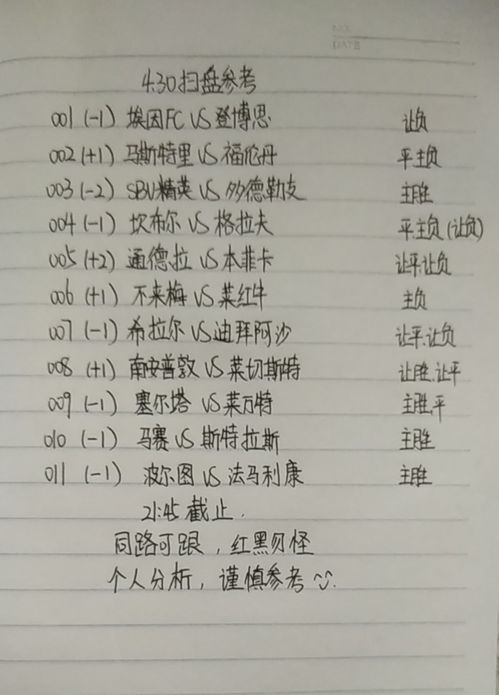 4.30扫盘参考
001 (-1) 埃因FC VS 登博思 让负
002 (+1) 马斯特里 VS 福伦丹 平.主负
003 (-2) SBV精英 VS 多德勒支 主胜
004 (-1) 坎布尔 VS 格拉夫 平.主负(让负)
005 (+2) 通德拉 VS 本菲卡 让平.让负
006 (+1) 不来梅 VS 莱红牛 主负
007 (-1) 希拉尔 VS 迪拜阿沙 让平.让负
008 (+1) 南安普敦 VS 莱切斯特 让胜.让平
009 (-1) 塞尔塔 VS 莱万特 主胜.平
010 (-1) 马赛 VS 斯特拉斯 主胜
011 (-1) 波尔图 VS 法马利康 主胜
21:45 截止.
同路可跟，红黑勿怪
个人分析，谨慎参考